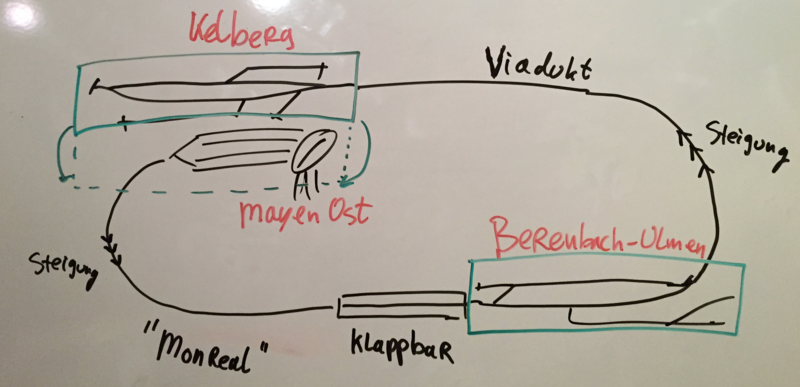 Kelberg
Viadukt
Steigung
Mayen Ost
Berenbach-Ulmen
Steigung
"MonReal"
Klappbar